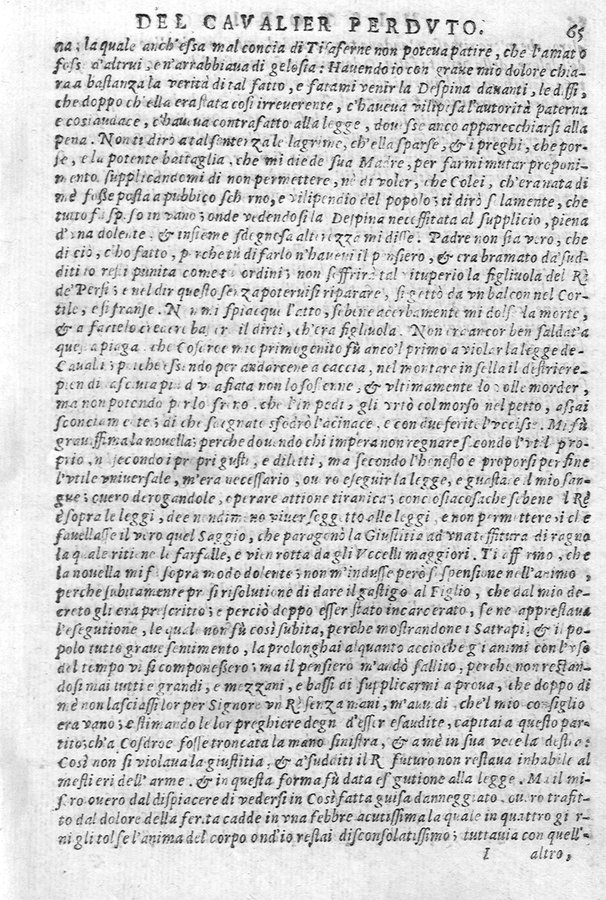 DEL CAVALIER PERDVTO. 65
na; la quale anch'essa mal concia di Tisaferne non poteva patire, che l'amato
foss' d'altrui, e n'arrabbiava di gelosia: Havendo io con grave mio dolore chia-
ra a bastanza la verità di tal fatto, e fatami venir la Despina davanti, le dissi,
che doppo ch'ella era stata così irreverente, c'haveva vilipesa l'autorità paterna
e così audace, c'havea contrafatto alla legge, dovesse anco apparecchiarsi alla
pena. Non ti dirò a tal sentenza le lagrime, ch'ella sparse, & i preghi, che por-
se, e la potente battaglia, che mi diede sua Madre, per farmi mutar proponi-
mento, supplicandomi di non permettere, nè di voler, che Colei, ch'era nata di
mè fosse posta a pubbico scherno, e vilipendio del popolo; ti dirò solamente, che
tutto fù speso in vano; onde vedendosi la Despina necessitata al supplicio, piena
d'una dolente, & insieme sdegnosa alterezza mi disse. Padre non sia vero, che
di ciò, c'ho fatto, perche tù di farlo n'havevi il pensiero, & era bramato da' sud-
diti io resti punita come tu ordini; non soffrirà tal vituperio la figliuola del Rè
de' Persi; e nel dir questo senza potervisi riparare, si gettò da un balcon nel Cor-
tile, e si franse. Non mi spiacque l'atto, sebene acerbamente mi dolse la morte,
& a fartelo credere basta il dirti, ch'era figliuola. Non era ancor ben saldat'a
questa piaga, che Cosdroe mio primogenito fù ancol' primo a violar la legge de-
Cavalli; perche essendo per andarcene a caccia, nel montare in sella il destriere
pien di ascuta più d' una fiata non lo sofferse, & ultimamente lo volle morder,
ma non potendo per lo freno, che l'impedì, gli urtò col morso nel petto, assai
sconciamente; di che sdegnato sfodrò l'acinace, e con due ferite l'uccise. Mi fù
gravissima la novella; perche dovendo chi impera non regnare secondo l'util pro-
prio, nè secondo i propri gusti, e diletti, ma secondo l'honesto e proporsi per fine
l'utile universale, m'era necessario, overo eseguir la legge, e guastare il mio san-
gue; overo derogandole, operare attione tiranica; conciosiacosache sebene il Rè
è sopra le leggi, dee nondimeno viver soggetto alle leggi, e non permettere, ch e
favellasse il vero quel Saggio, che paragonò la Giustitia ad una tessitura di ragno
la quale ritiene le farfalle, e vien rotta da gli Uccelli maggiori. Ti affermo, che
la novella mi fu sopra modo dolente; non m'indusse però sospensione nell'animo,
perche subitamente presi risolutione di dare il gastigo al Figlio, che dal mio de-
creto gli era prescritto; e perciò doppo esser stato incarcerato, se ne apprestava
l'esegutione, le qual non fù così subita, perche mostrandone i Satrapi, & il po-
polo tutto grave sentimento, la prolonghai alquanto accioche gli animi con l'uso
del tempo vi si componessero; ma il pensiero m'andò fallito, perche non restan-
dosi mai tutti e grandi, e mezzani, e bassi di supplicarmi a prova, che doppo di
mè non lasciassi lor per Signore un Rè senza mani, m'avidi, che'l mio consiglio
era vano; e stimando le lor preghiere degne d'esser esaudite, capitai a questo par-
tito; ch'a Cosdroe fosse troncata la mano sinistra, & a mè in sua vece la destra:
Così non si violava la giustitia, & a' sudditi il Rè futuro non restava inhabile al
mestieri dell'arme. & in questa forma fù data esegutione alla legge. Ma il mi-
sero overo dal dispiacere di vedersi in Così fatta guisa danneggiato, overo trafit-
to dal dolore della ferita cadde in una febbre acutissima la quale in quattro gior-
ni gli tolse l'anima del corpo ond'io restai disconsolatissimo; tuttavia con quell'-
I altro,